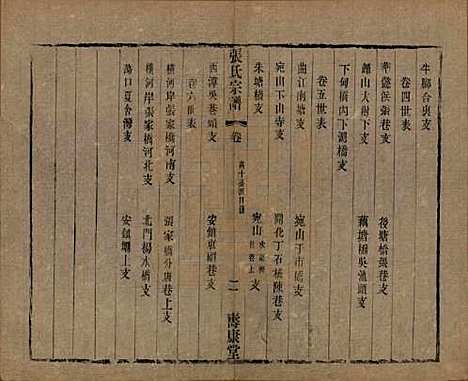 牛腳台裏支
卷四世表
華蕩張巷支 後塘橋張巷支
錫山大樹下支 藕塘橋吳池頭支
下甸橋內下湖橋支
卷五世表
曲江南塘支 宛山丁市橋支
宛山下山寺支 開化丁石橋陳巷支
朱塘橋支 宛山 支
張氏宗譜 卷 二 壽康堂
西漳吳巷頭支 安鎮東廟巷支
卷六世表
橫河岸張家橋河南支 張家橋分唐巷上支
橫河岸張家橋河北支 北門楊木橋支
蕩口夏台灣支 安鎮壩上支